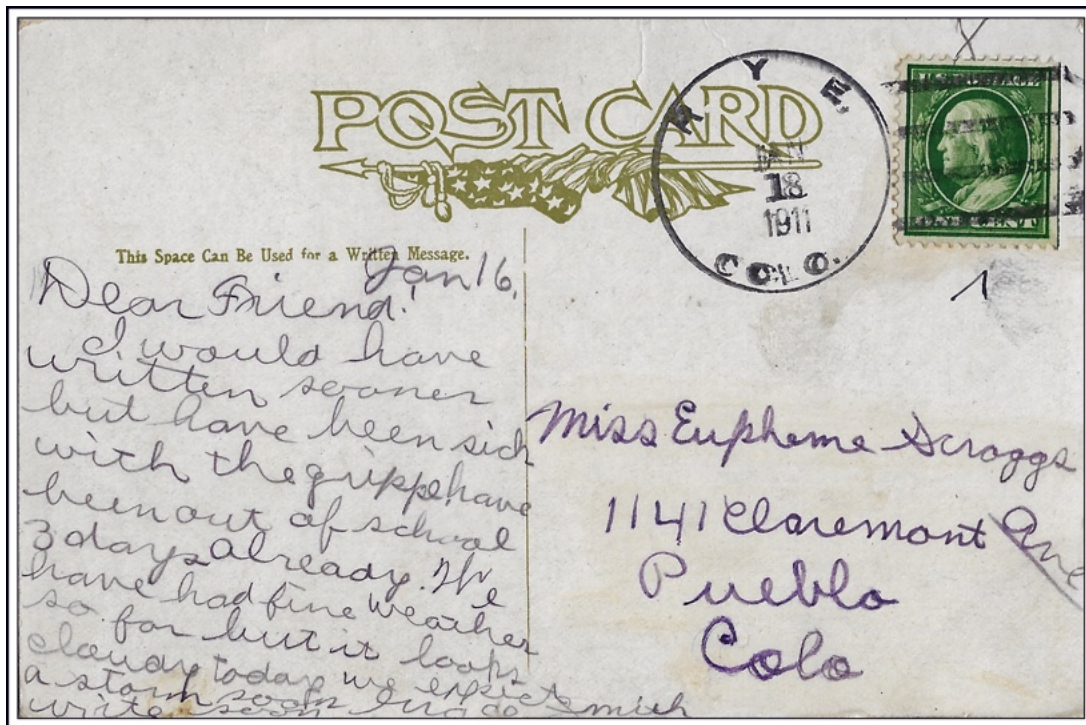 POST CARD
RYE,
JAN
18
1911
COLO.
This Space Can Be Used for a Written Message.
Jan 16,
Dear Friend!
I would have
written sooner
but have been sick
with the grippe have
been out of school
3 days already. We
have had fine weather
so far but it looks
cloudy today we expect
a storm soon
write soon Smith
1
Miss Eupheme Scroggs
1141 Claremont Ave
Pueblo
Colo